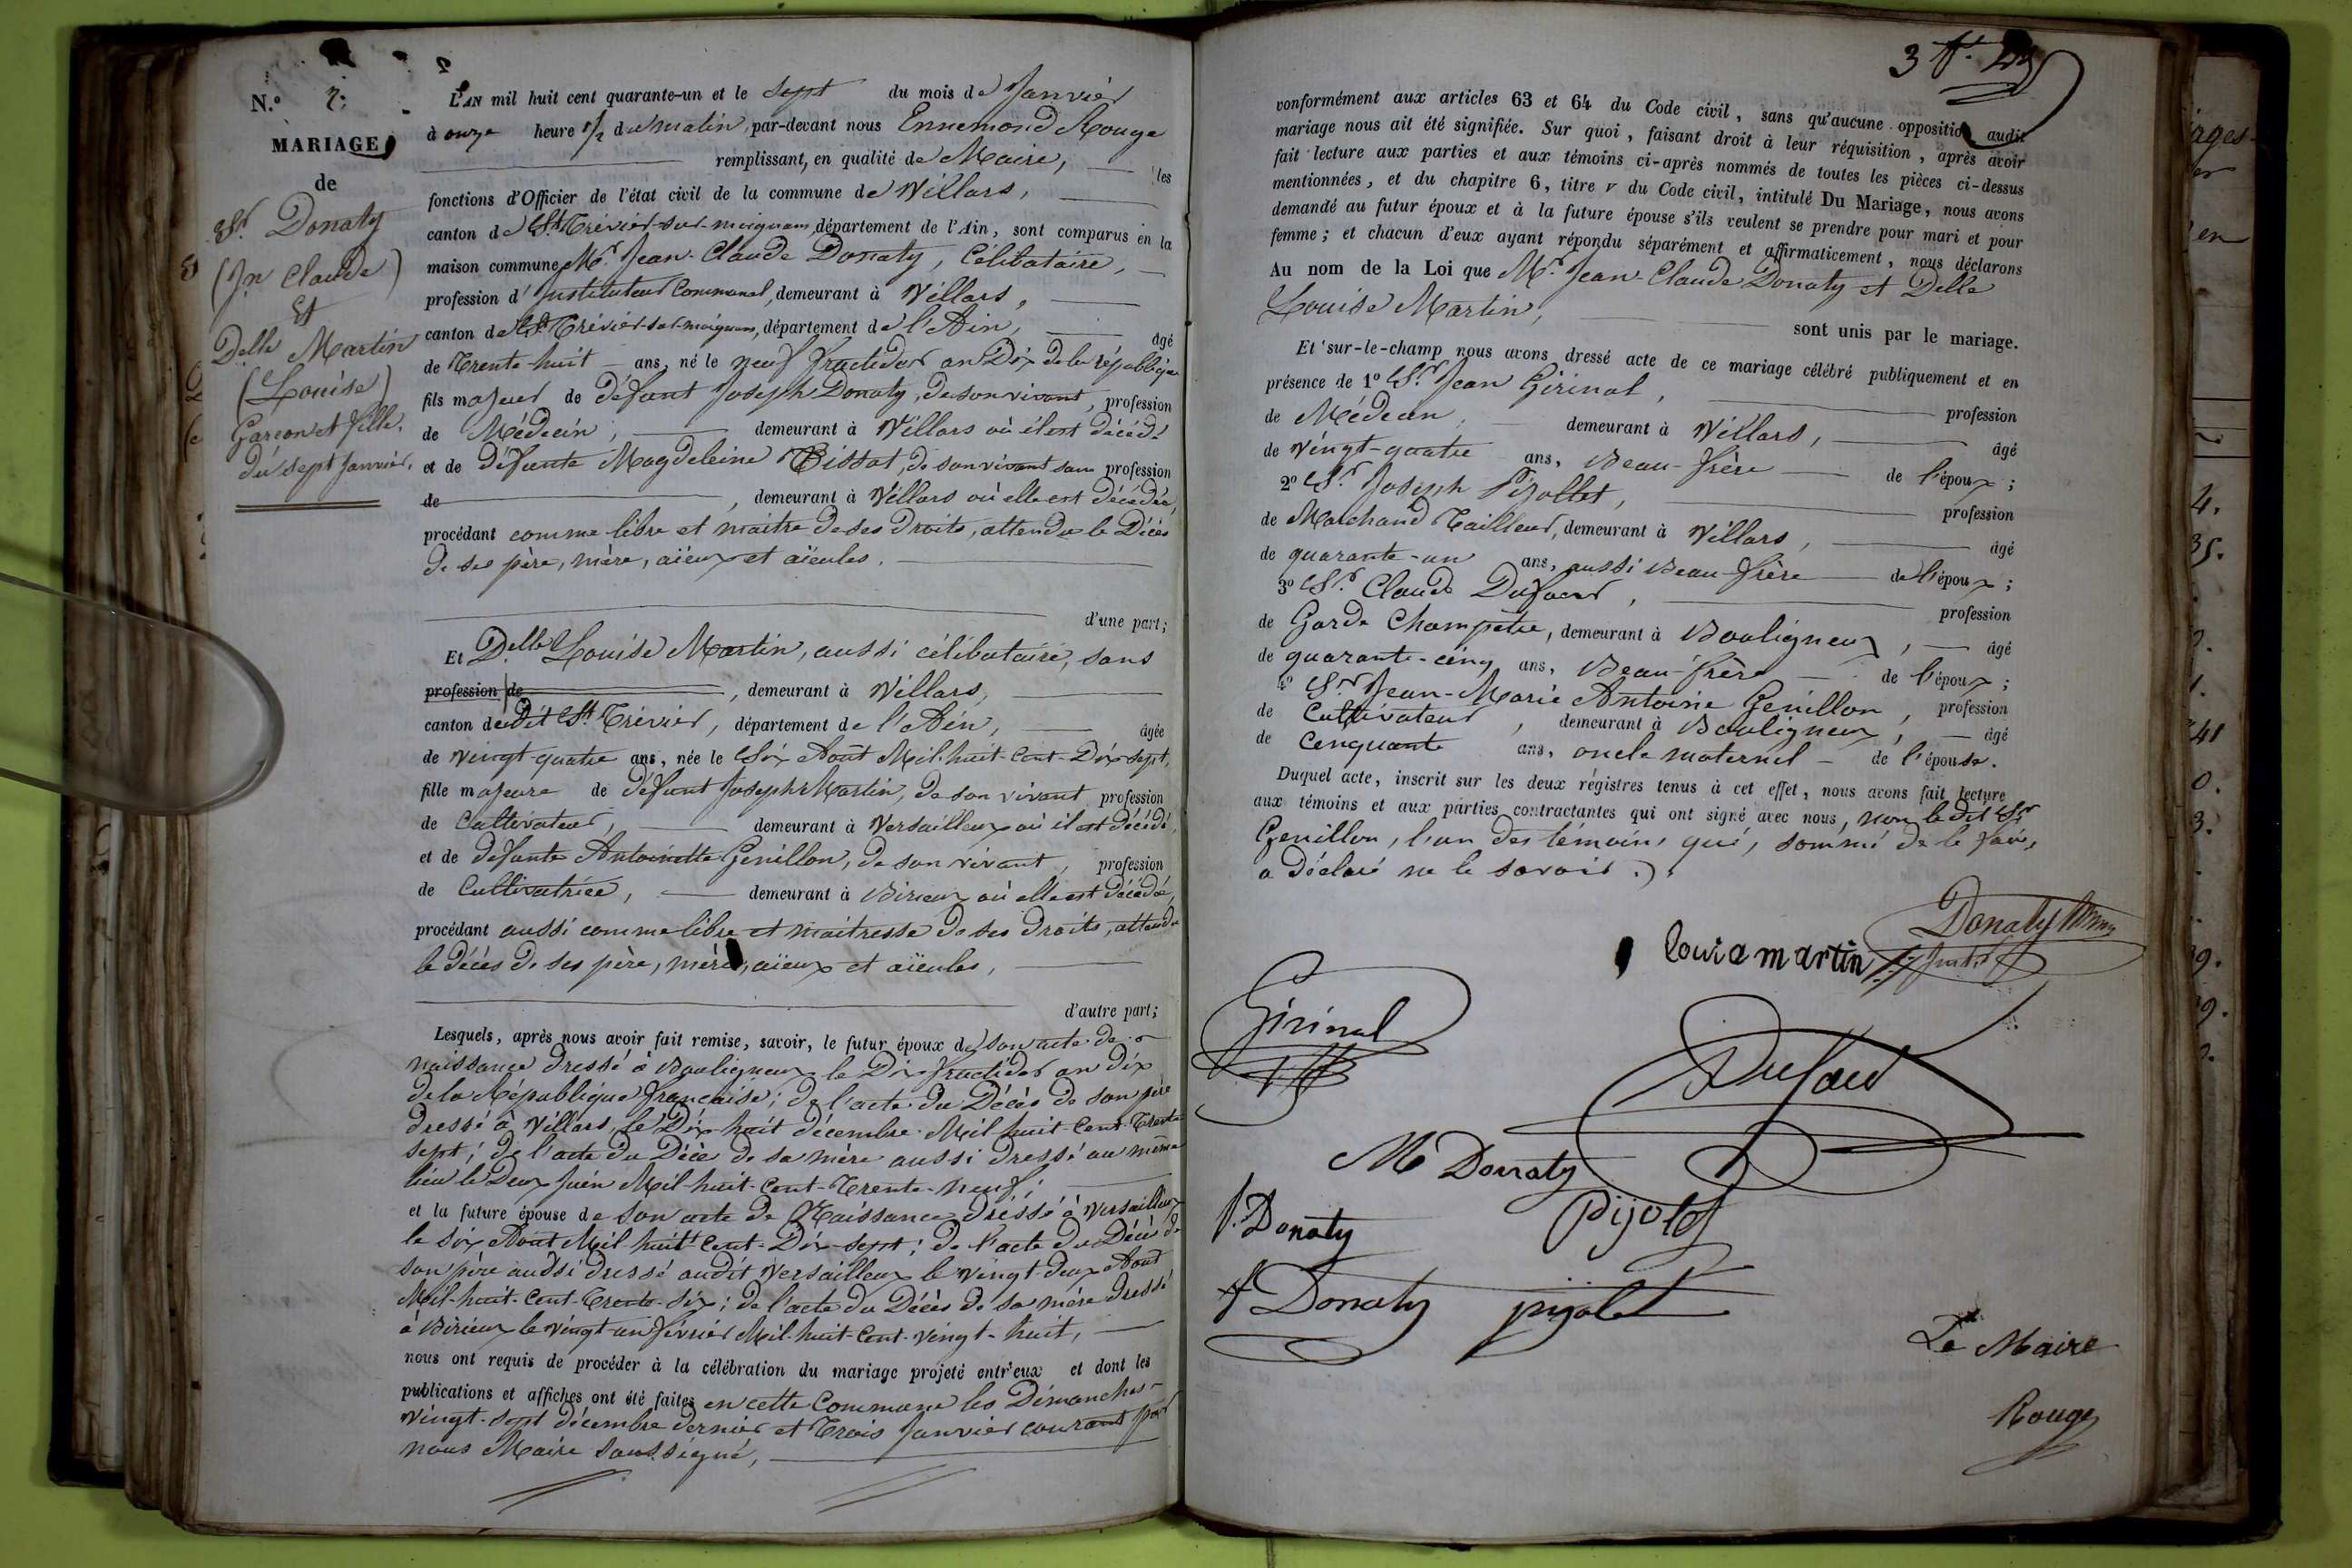 N.° 2.
MARIAGE
de
Sr. Donaty
(Jn Claude)
Et
Delle Martin
(Louise)
Garçon et fille.
du sept Janvier.
L'AN mil huit cent quarante-un et le sept du mois de Janvier
à onze heure 1/2 du matin, par-devant nous Ennemond Rouge
remplissant, en qualité de Maire, les
fonctions d'Officier de l'état civil de la commune de Villars,
canton de St. Trévier-sur-moignans, département de l'Ain, sont comparus en la
maison commune Mr. Jean-Claude Donaty, Célibataire,
profession d'Instituteur Communal, demeurant à Villars,
canton de St. Trévier-sur-moignans, département de l'Ain, âgé
de Trente-huit ans, né le neuf fructidor an Dix de la république
fils majeur de défunt Joseph Donaty, de son vivant, profession
de Médecin, demeurant à Villars où il est décédé
et de défunte Magdeleine Bissat, de son vivant sans profession
de , demeurant à Villars où elle est décédée,
procédant comme libre et maître de ses droits, attendu le Décès
de ses père, mère, aïeux et aïeules.
d'une part;
Et Delle Louise Martin, aussi célibataire, sans
profession de , demeurant à Villars,
canton dudit St. Trévier, département de l'Ain, âgée
de vingt-quatre ans, née le Six Août Mil-huit-Cent-Dix-sept,
fille majeure de défunt Joseph Martin, de son vivant profession
de Cultivateur, demeurant à Versailleux où il est décédé,
et de défunte Antoinette Genillon, de son vivant, profession
de Cultivatrice, demeurant à Birieux où elle est décédée,
procédant aussi comme libre et maîtresse de ses droits, attendu
le décès de ses père, mère, aïeux et aïeules,
d'autre part;
Lesquels, après nous avoir fait remise, savoir, le futur époux de son acte de
naissance dressé à Bouligneux le Dix fructidor an dix
de la République française; de l'acte du Décès de son père
dressé à Villars, le Dix-huit décembre Mil huit-Cent-Trente
sept; de l'acte du Décè de sa mère aussi dressé au même
lieu le Deux Juin Mil-huit-Cent-Trente-neuf;
et la future épouse de son acte de Naissance dressé à Versailleux
le six Août Mil huit Cent-Dix-sept; de l'acte du Décès de
son père aussi dressé audit Versailleux le vingt-deux Août
Mil-huit-Cent-Trente-six; de l'acte du Décès de sa mère dressé
à Birieux le vingt-un février Mil-huit-Cent-vingt-huit,
nous ont requis de procéder à la célébration du mariage projeté entr'eux et dont les
publications et affiches ont été faites en cette Commune les Dimanches
vingt-sept décembre dernier et Trois Janvier courant par
nous Maire soussigné,
conformément aux articles 63 et 64 du Code civil, sans qu'aucune opposition audit
mariage nous ait été signifiée. Sur quoi, faisant droit à leur réquisition, après avoir
fait lecture aux parties et aux témoins ci-après nommés de toutes les pièces ci-dessus
mentionnées, et du chapitre 6, titre v du Code civil, intitulé Du Mariage, nous avons
demandé au futur époux et à la future épouse s'ils veulent se prendre pour mari et pour
femme; et chacun d'eux ayant répondu séparément et affirmativement, nous déclarons
Au nom de la Loi que Mr. Jean-Claude Donaty et Delle
Louise Martin, sont unis par le mariage.
Et sur-le-champ nous avons dressé acte de ce mariage célébré publiquement et en
présence de 1° Sr. Jean Girinal, profession
de Médecin, demeurant à Villars, âgé
de vingt-quatre ans, Beau-frère de l'époux;
2° Sr. Joseph Pijollet, profession
de Marchand Tailleur, demeurant à Villars, âgé
de quarante-un ans, aussi Beau-frère de l'époux;
3° Sr. Claude Dufour, profession
de Garde Champêtre, demeurant à Bouligneux, âgé
de quarante-cinq ans, Beau-frère de l'époux;
4° Sr. Jean-Marie Antoine Genillon, profession
de Cultivateur, demeurant à Bouligneux, âgé
de Cinquante ans, oncle maternel de l'épouse.
Duquel acte, inscrit sur les deux régistres tenus à cet effet, nous avons fait lecture
aux témoins et aux parties contractantes qui ont signé avec nous, non ledit Sr
Genillon, l'un des témoins qui, sommé de le faire,
a déclaré ne le savoir.
Donaty
louise martin
Girinal
Dufour
M Donaty
Donaty
Pijolet
Donaty
pijolet
Le Maire
Rouge